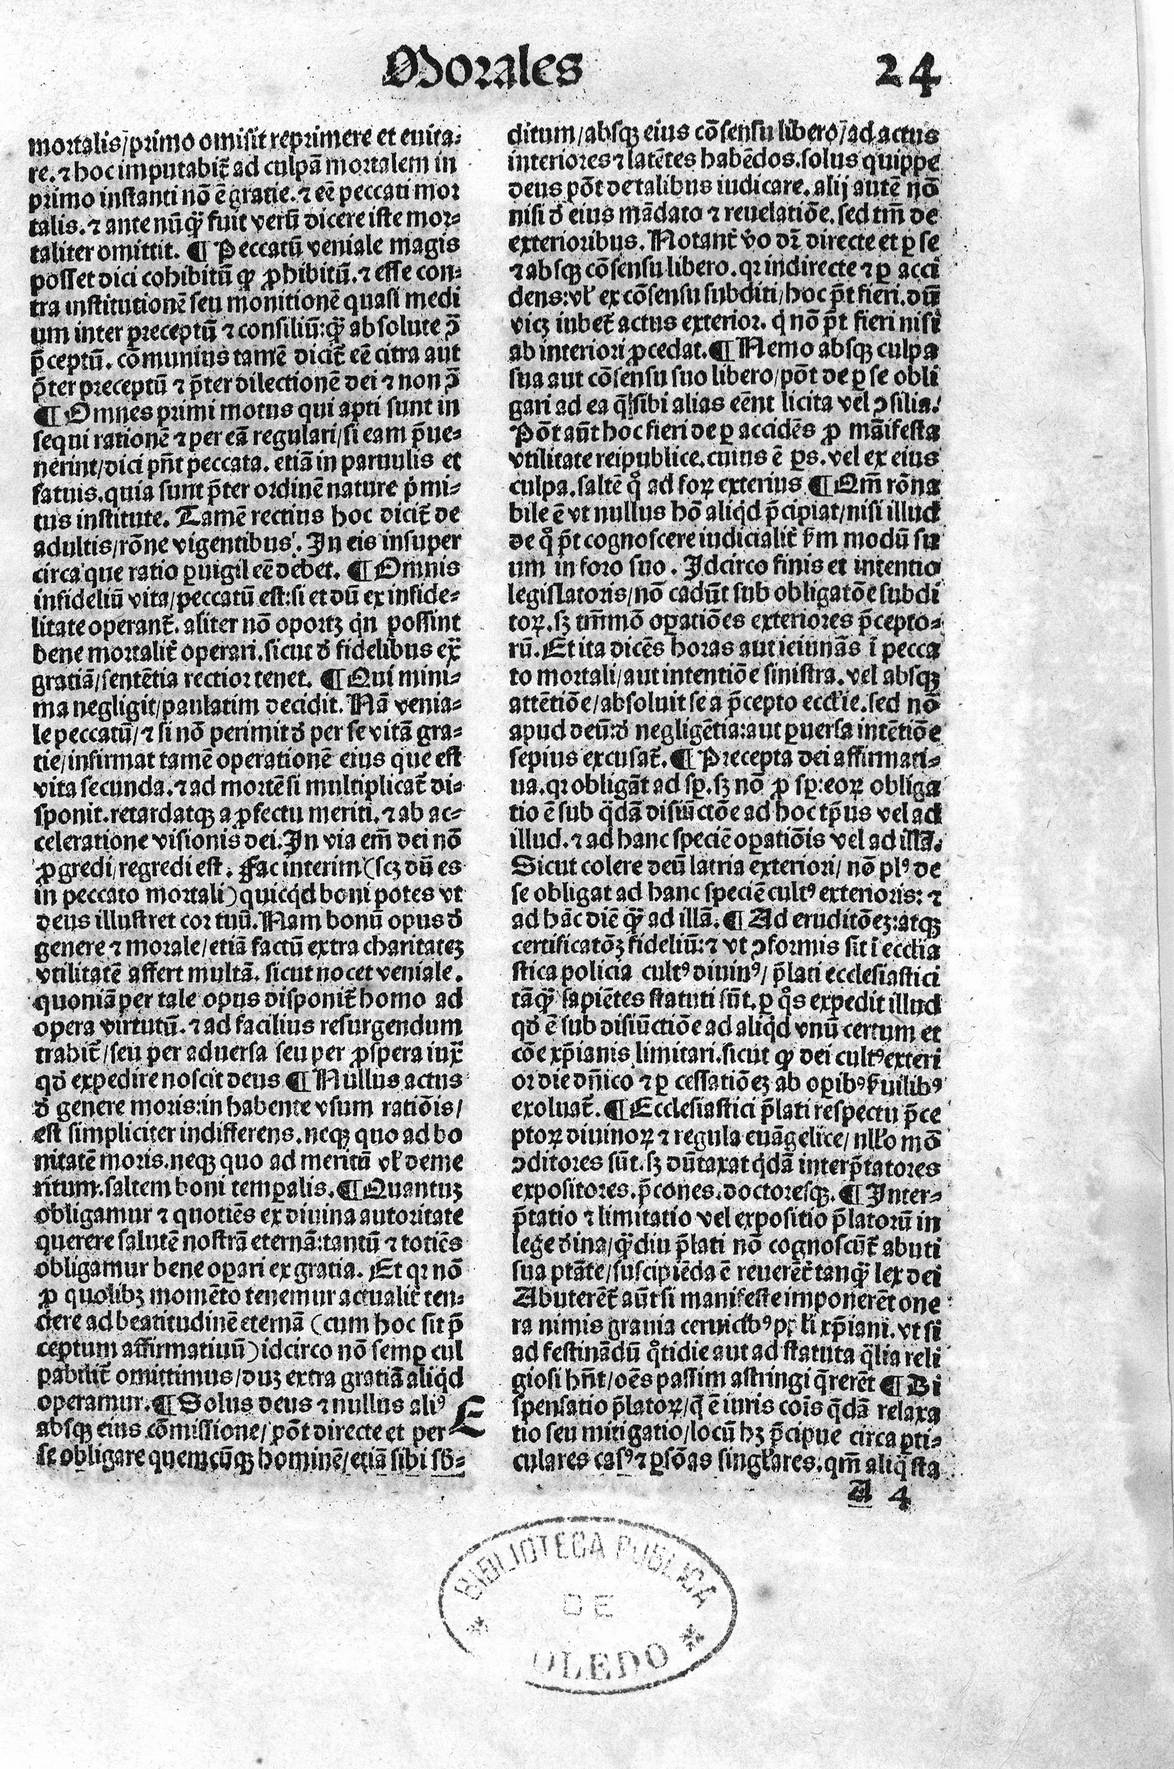 Morales
24
mortalis/primo omisit reprimere et euita⸗
re. ⁊ hoc imputabit̃ ad culpã mortalem in
primo instanti nõ ẽ gratie. ⁊ eẽ peccati mor
talis. ⁊ ante nũq̃ fuit verũ dicere iste mor⸗
taliter omittit. ¶ Peccatũ veniale magis
posset dici cohibitũ q̃ ꝓhibitũ. ⁊ esse con⸗
tra institutionẽ seu monitionẽ quasi medi
um inter p̱ceptũ ⁊ consiliũ: q̃ absolute ↄ̃
p̃ceptũ. cõmunius tamẽ dicit̃ eẽ citra aut
p̃ter preceptũ ⁊ p̃ter dilectionẽ dei ⁊ non ↄ̃
¶ Omnes primi motus qui apti sunt in
sequi rationẽ ⁊ per eã regulari/si eam p̃ue⸗
nerint/dici pñt peccata. etiã in paruulis et
fatuis. quia sunt p̃ter ordinẽ nature p̃mi⸗
tus institute. Tamẽ rectius hoc dicit̃ de
adultis/rõne vigentibus. In eis insuper
circa que ratio ꝑuigil eẽ debet. ¶ Omnis
infideliũ vita/peccatũ est: si et dũ ex infide⸗
litate operant̃. aliter nõ oportꝫ qñ possint
bene mortalit̃ operari. sicut đ fidelibus ex̃
gratiã/sentẽtia rectior tenet. ¶ Qui mini⸗
ma negligit/paulatim decidit. Nã venia⸗
le peccatũ/⁊ si nõ perimit đ per se vitã gra⸗
tie/infirmat tamẽ operationẽ eius que est
vita secunda. ⁊ ad mortẽ si multiplicat̃ di⸗
sponit. retardatqꝫ a ꝓfectu meriti. ⁊ ab ac⸗
celeratione visionis dei: In via em̃ dei nõ
ꝓgredi/regredi est. Fac interim (scꝫ dũ es
in peccato mortali) quicq̃d boni potes vt
deus illustret cor tuũ. Nam bonũ opus đ
genere ⁊ morale/etiã factũ extra charitatẽ
vtilitatẽ affert multã. sicut nocet veniale.
quoniã per tale opus disponit̃ homo ad
opera virtutũ. ⁊ ad facilius resurgendum
trahit̃/seu per aduersa seu per ꝓspera iux̃
qđ expedire noscit deus ¶ Nullus actus
đ genere moris: in habente vsum ratiõis/
est simpliciter indifferens. neqꝫ quo ad bo
nitatẽ moris. neqꝫ quo ad meritũ vł deme
ritum. saltem boni temꝑalis. ¶ Quantuꝫ
obligamur ⁊ quotiẽs ex diuina autoritate
querere salutẽ nostrã eternã: tantũ ⁊ totiẽs
obligamur bene oꝑari ex gratia. Et qꝛ nõ
ꝓ quolibꝫ momẽto tenemur actualit̃ ten⸗
dere ad beatitudinẽ eternã (cum hoc sit p̃
ceptum affirmatiuũ) idcirco nõ semꝑ cul
pabilit̃ omittimus/dũ extra gratiã aliq̃d
operamur. ¶ Solus deus ⁊ nullus aliꝰ
absqꝫ eius cõmissione/põt directe et per
E
se obligare quemcũqꝫ hominẽ/etiã sibi sб̃⸗
ditum/absqꝫ eius cõsensu libero/ad actus
interiores ⁊ latẽtes habẽdos. solus quippe
deus põt de talibus iudicare. alij autẽ nõ
nisi đ eius mãdato ⁊ reuelatiõe. sed tm̃ de
exterioribus. Notant̃ v̊o dr̃ directe et ꝑ se
⁊ absqꝫ cõsensu libero. qꝛ indirecte ⁊ ꝑ acci
dens: vł ex cõsensu subditi/hoc p̃t fieri. dũ
vicꝫ iubet̃ actus exterior. q̃ nõ p̃t fieri nisi
ab interiori ꝓcedat. ¶ Nemo absqꝫ culpa
sua aut cõsensu suo libero/põt de ꝑ se obli
gari ad ea q̃ sibi alias eẽnt licita vel ↄsilia.
Põt aũt hoc fieri de ꝑ accidẽs ꝓ mãifesta
vtilitate reipublice. cuius ẽ ꝑs. vel ex eius
culpa. saltẽ q̊ ad foꝝ exterius ¶ Om̃ rõna
bile ẽ vt nullus hõ aliq̃d p̃cipiat/nisi illud
de q̊ p̃t cognoscere iudicialit̃ ẜm modũ su
um in foro suo. Idcirco finis et intentio
legislatoris/nõ cadũt sub obligatõe subdi
toꝝ. sꝫ tm̃mõ oꝑatiões exteriores p̃cepto⸗
rũ. Et ita dicẽs horas aut ieiunãs ĩ pecca
to mortali/aut intentiõe sinistra. vel absqꝫ
attẽtiõe/absoluit se a p̃cepto ecclie. sed nõ
apud deũ: đ negligẽtia: aut ꝑuersa intẽtiõe
sepius excusat̃. ¶ Precepta dei affirmati⸗
ua. qꝛ obligãt ad sꝑ. sꝫ nõ ꝓ sꝑ: eoꝝ obliga
tio ẽ sub q̃dã disiũctõe ad hoc tp̃us vel ad
illud. ⁊ ad hanc speciẽ oꝑatiõis vel ad illã.
Sicut colere deũ latria exteriori/ nõ plꝰ de
se obligat ad hanc speciẽ cultꝰ exterioris: ⁊
ad hãc diẽ q̃ ad illã. ¶ Ad eruditõeꝫ: atqꝫ
certificatõꝫ fideliũ: ⁊ vt ↄformis sit ĩ ecclia
stica policia cultꝰ diuinꝰ/ p̃lati ecclesiastici
tãq̃ sapiẽtes statuti sũt. ꝑ q̊s expedit illud
qđ ẽ sub disiũctiõe ad aliq̃d vnũ certum et
cõe xp̃ianis limitari. sicut q̃ dei cultꝰ exteri
or die dñico ⁊ ꝑ cessatiõeꝫ ab oꝑibꝰ ẜuilibꝰ
exoluat̃. ¶ Ecclesiastici p̃lati respectu p̃ce
ptoꝝ diuinoꝝ ⁊ regula euãgelice/ nłło mõ
ↄditores sũt. sꝫ dũtaxat q̃dã interp̃tatores
expositores. p̃cones. doctoresqꝫ. ¶ Inter⸗
p̃tatio ⁊ limitatio vel expositio p̃latorũ in
lege đina/q̃diu p̃lati nõ cognoscũt̃ abuti
sua ptãte/suscipiẽda ẽ reuerẽt̃ tanq̃ lex dei
Abuterẽt̃ aũt si manifeste imponerẽt one
ra nimis grauia ceruicibꝰ ppłi xp̃iani. vt si
ad festinãdũ q̊tidie aut ad statuta q̃lia reli
giosi hñt/oẽs passim astringi q̃rerẽt ¶ Di
spensatio p̃latoꝝ/q̃ ẽ iuris cõis q̃dã relaxa
tio seu mitigatio/locũ hꝫ p̃cipue circa ꝑti⸗
culares casꝰ ⁊ ꝑsõas singłares. qm̃ aliq̃ sta
A 4
BIBLIOTECA PUBLICA
DE
OLEDO